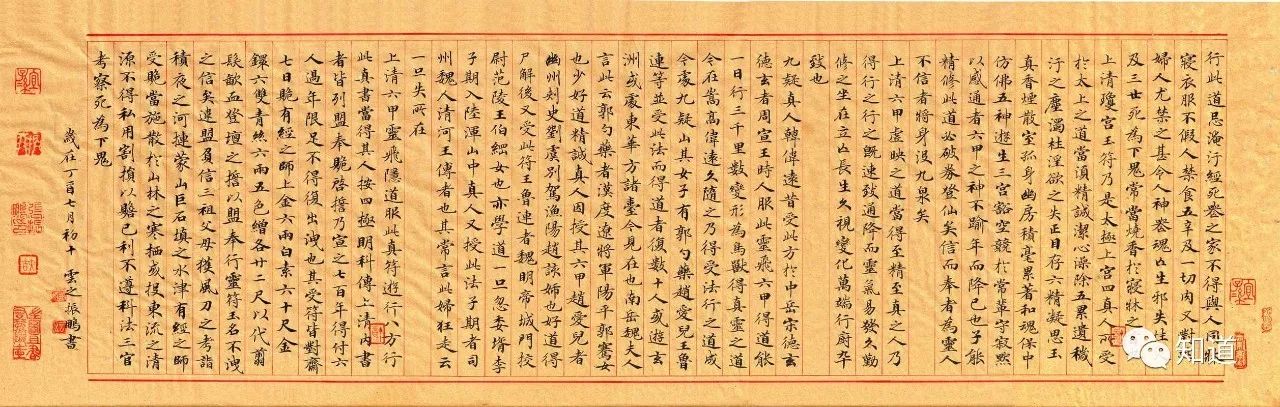 行此道忌淹汙經死喪之家不得與人同床
寢衣服不假人禁食五辛及一切肉又對
婦人尤禁之甚令人神喪魂亡生邪失性
及三世死為下鬼常當燒香於寢牀
上清瓊宮玉符乃是太極上宮四真人所受
於太上之道當須精誠潔心澡除五累遺穢
汙之塵濁杜淫欲之失正目存六精凝思玉
真香煙散室孤身幽房積毫累著和魂保中
仿佛五神遊生三宮豁空競於常輩守寂默
以感通者六甲之神不踰年而降已也子能
精修此道必破券登仙矣信而奉者為靈人
不信者將身沒九泉矣
上清六甲虛映之道當得至精至真之人乃
得行之行之既速致通降而靈氣易發久勤
修之坐在立亡長生久視變化萬端行廚卒
致也
九疑真人韓偉遠昔受此方於中岳宗德玄
德玄者周宣王時人服此靈飛六甲得道能
一日行三千里數變形為鳥獸得真靈之道
今在嵩高偉遠久隨之乃得受法行之道成
今處九疑山其女子有郭勺藥趙愛兒王魯
連等並受此法而得道者復數十人或遊玄
洲或處東華方諸臺今見在也南岳魏夫人
言此云郭勺藥者漢度遼將軍陽平郭騫女
也少好道精誠真人因授其六甲趙愛兒者
幽州刾史劉虞別駕漁陽趙該姊也好道得
尸解後又受此符王魯連者魏明帝城門校
尉范陵王伯綱女也亦學道一旦忽委婿李
子期入陸渾山中真人又授此法子期者司
州魏人清河王傳者也其常言此婦狂走云
一旦失所在
上清六甲靈飛隱道服此真符遊行八方行
此真書當得其人按四極明科傳上清內書
者皆列盟奉贶啓誓乃宣之七百年得付六
人過年限足不得復出洩也其受符皆對齋
七日贶有經之師上金六兩白素六十尺金
鐶六雙青絲六兩五色繒各廿二尺以代翦
髮歃血登壇之誓以盟奉行靈符玉名不洩
之信矣違盟負信三祖父母獲風刀之考詣
積夜之河連蒙山巨石填之水津有經之師
受贶當施散於山林之寒栖或投東流之清
源不得私用割損以贍己利不遵科法三官
考察死為下鬼
歲在丁酉七月初十 雲之振鵬書
知道